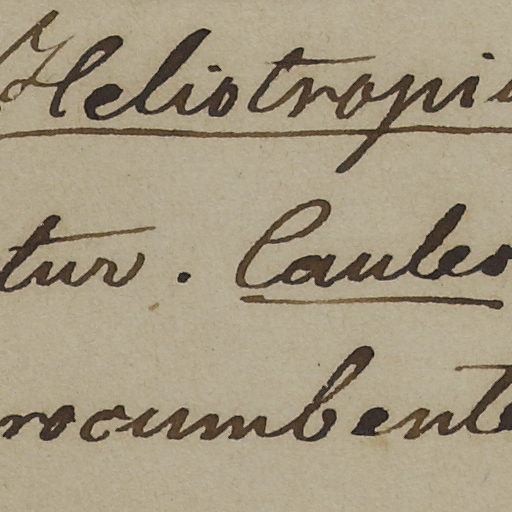 Heliotropi
tur. Caules
rocumbente